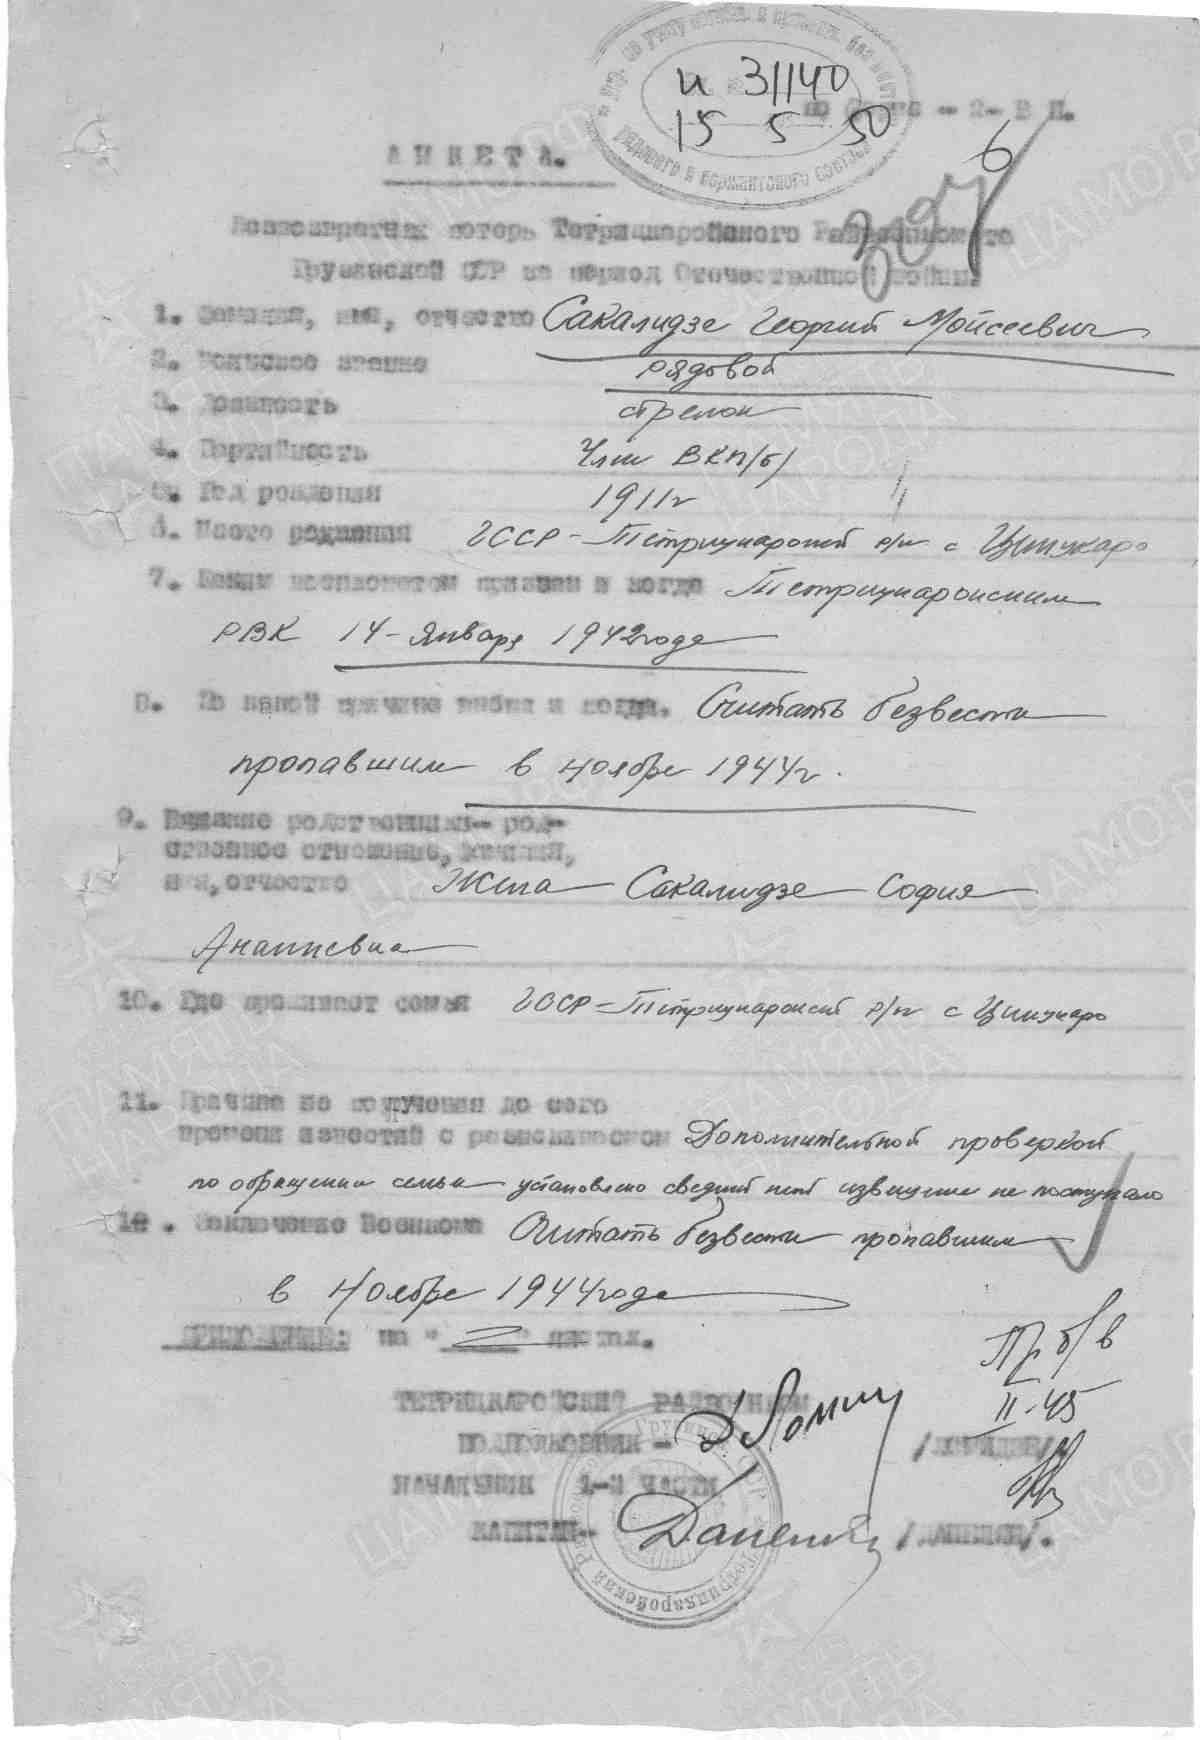 Упр. по учету погибш. и пропавш. без вести
рядового и сержантского состава
и 31140
15 5 50
по форме - 2- В П.
6
АНКЕТА.
Безвозвратных потерь Тетрицкаройского Райвоенкомата
Грузинской ССР за период Отечественной войны.
1. Фамилия, имя, отчество Сакалидзе Георгий Мойсеевич
2. Воинское звание рядовой
3. Должность стрелок
4. Партийность Член ВКП/б/
5. Год рождения 1911г
6. Место рождения ГССР - Тетрицкаройский р/н с Цинцкаро
7. Каким военкоматом призван и когда Тетрицкаройским
РВК 14 - Января 1942 года
8. По какой причине выбыл и когда. Считать безвести
пропавшим в ноябре 1944г.
9. Близкие родственники- род-
ственное отношение, фамилия,
имя, отчество Жена Сакалидзе София
Ананиевна
10. Где проживает семья ГССР - Тетрицкаройский р/н с Цинцкаро
11. Причина не получения до сего
времени известий о разыскиваемом Дополнительной проверкой
по обращении семьи установлено сведний нет извещение не поступало
12. Заключение Военкома Считать безвести пропавшим
в ноябре 1944 года
ПРИЛОЖЕНИЕ: на "2" листах.
Пр б/в
II-45
ТЕТРИЦКАРОЙСКИЙ РАЙВОЕНКОМ
ПОДПОЛКОВНИК -
НАЧАЛЬНИК 1-й ЧАСТИ
КАПИТАН-